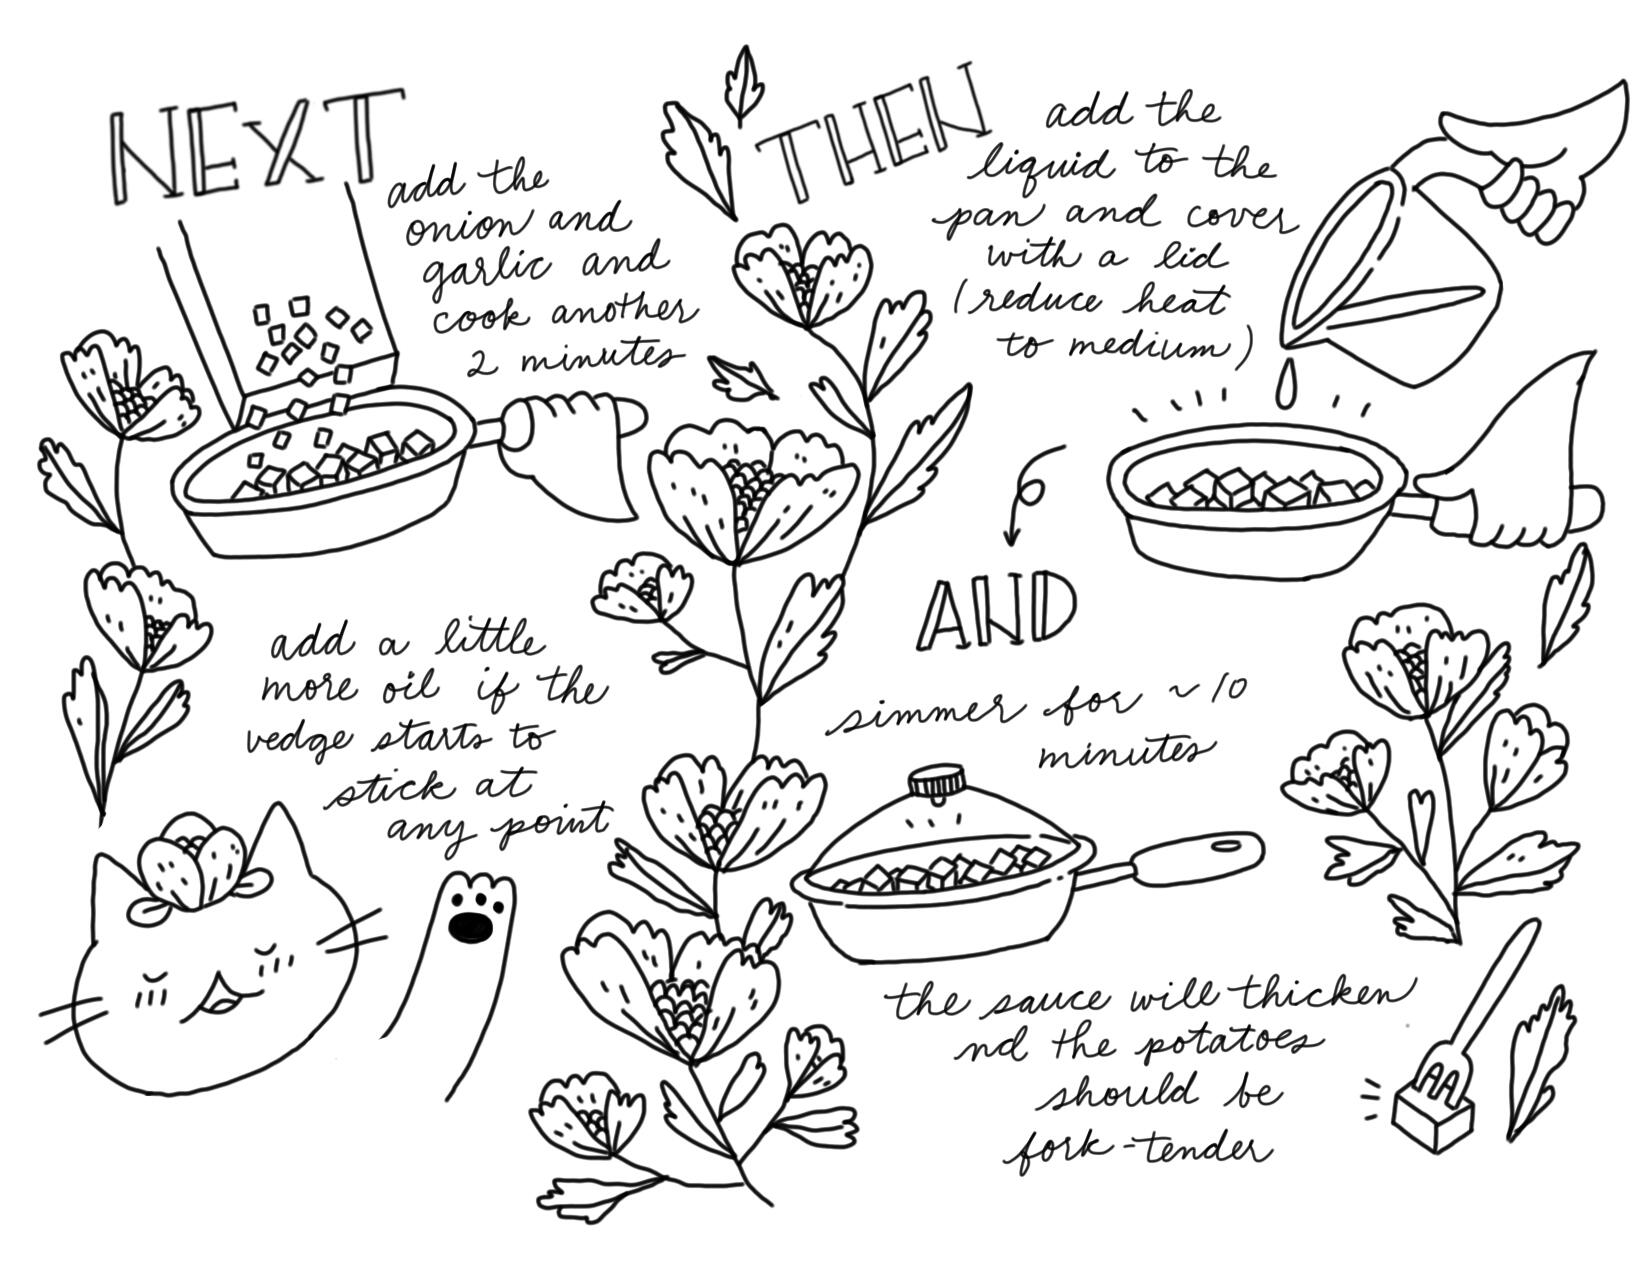 NEXT
add the
onion and
garlic and
cook another
2 minutes
add a little
more oil if the
vedge starts to
stick at
any point
THEN
add the
liquid to the
pan and cover
with a lid
(reduce heat
to medium)
AND
simmer for ~10
minutes
the sauce will thicken
nd the potatoes
should be
fork-tender